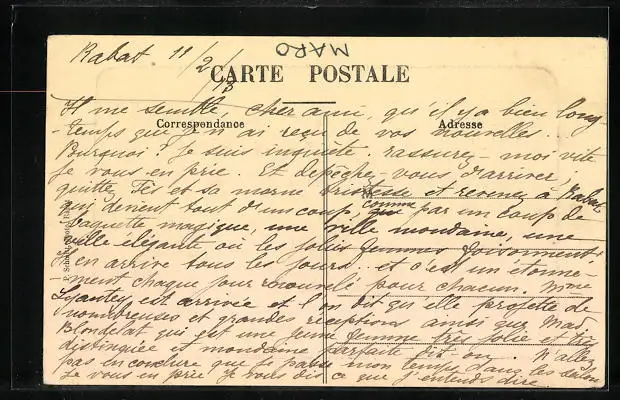 Rabat 11/2/13
MARO
CARTE POSTALE
Correspondance
Adresse
Il me semble, cher ami, qu'il y a bien long-
-temps que je n'ai reçu de vos nouvelles...
Pourquoi? Je suis inquiète, rassurez-moi vite
je vous en prie. Et dépêchez-vous d'arriver;
quittez Fès et sa morne tristesse et revenez à Rabat
qui devient tout d'un coup, comme par un coup de
baguette magique, une ville mondaine, une
ville élégante où les jolies femmes foisonnent:
Il en arrive tous les jours.. et c'est un étonne-
-ment chaque jour renouvelé pour chacun. Mme
Lyautey est arrivée et l'on dit qu'elle projette de
nombreuses et grandes réceptions ainsi que Mad.
Blondelat qui est une jeune femme très jolie et très
distinguée et mondaine parfaite dit-on. N'allez
pas en conclure que je passe mon temps dans les salons
je vous en prie je vous dis ce que j'entends dire